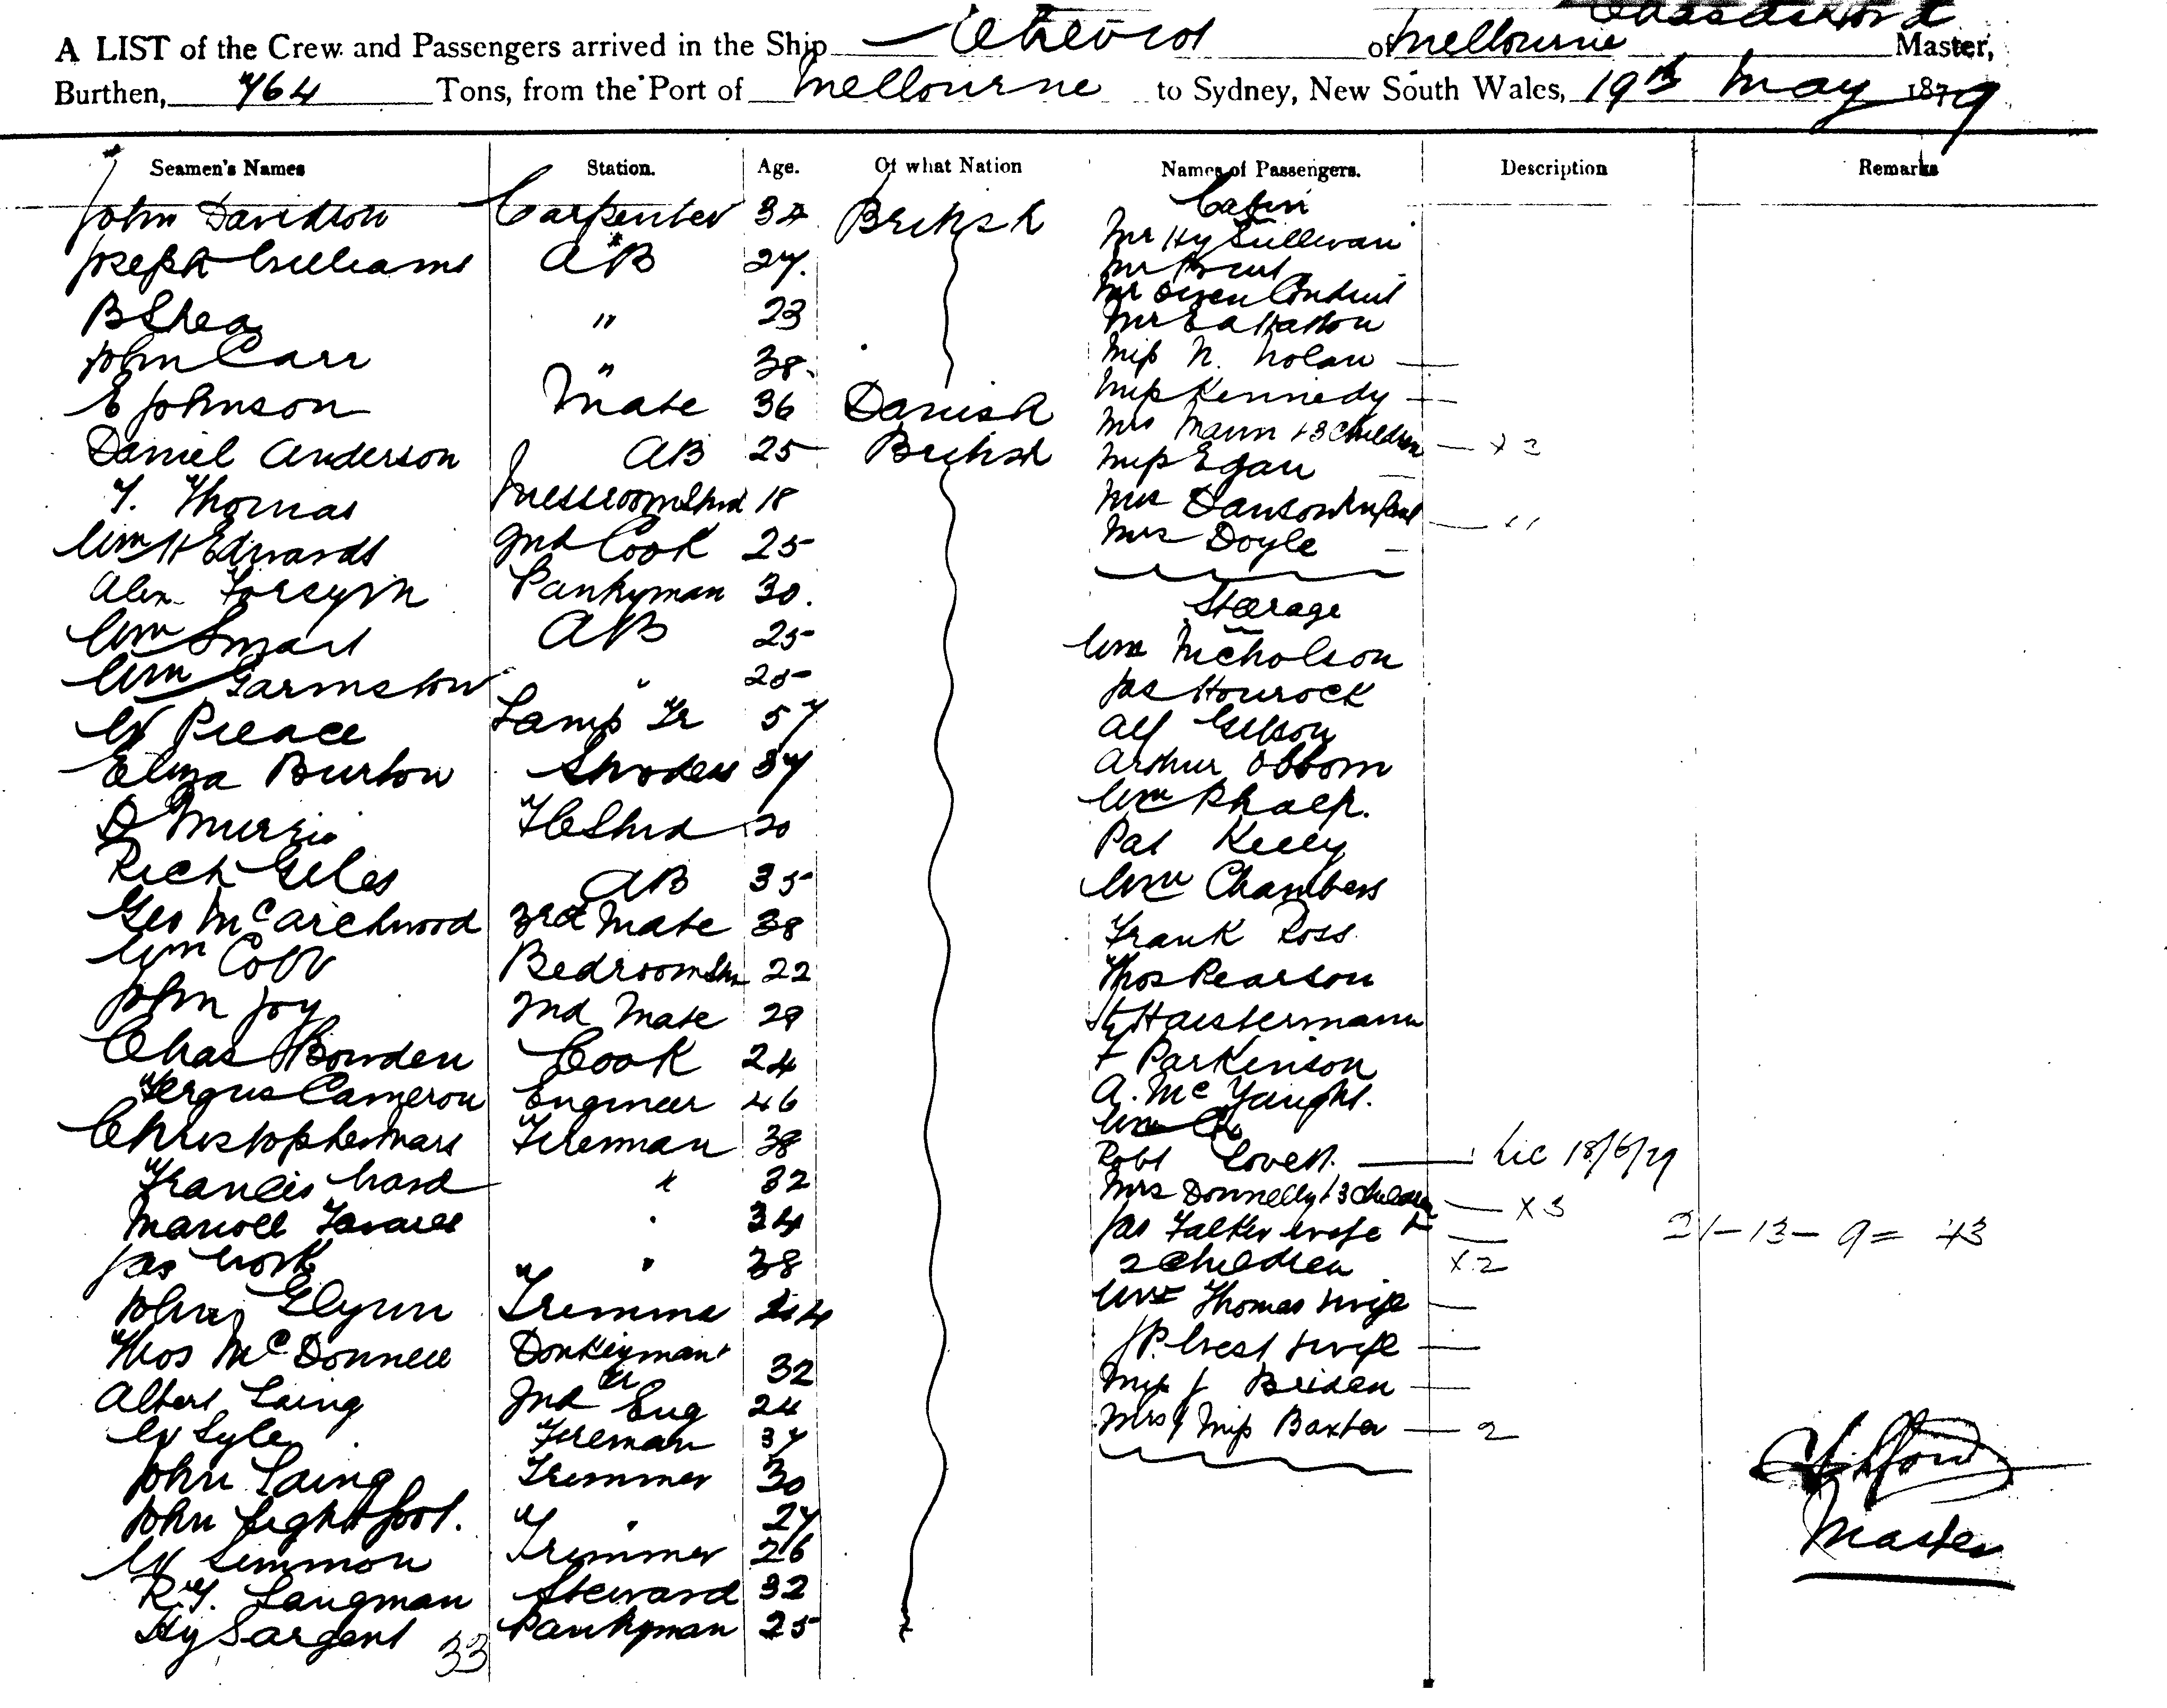 A LIST of the Crew and Passengers arrived in the Ship Cheviot of Melbourne Master,
Burthen, 764 Tons, from the Port of Melbourne to Sydney, New South Wales, 19th May 1879
Seamen's Names Station. Age. Of what Nation Names of Passengers. Description Remarks
John Davidson Carpenter 34 British
Joseph Williams AB 27.
B Shea " 23
John Carr " 38
E Johnson Mate 36 Danish
Daniel Anderson AB 25 British
T. Thomas Messroom Stwd 18
Wm H Edwards 2nd Cook 25
Alex Forsyth Pantryman 30.
Wm Smart AB 25
Wm Garmston " 25
W Pierce Lamp Tr 57
Eliza Burton Stwdess 37
D Murrie FCStwd 20
Rich Giles AB 35
Geo McArchwood 3rd Mate 38
Wm Cobb Bedroom Stw 22
John Joy 2nd Mate 29
Chas Bowden Cook 24
Fergus Cameron Engineer 46
Christopher Mars Fireman 38
Francis Ward " 32
" 34
Jas Work " 38
John Glynn Trimmer 24
Thos McDonnell Donkeyman 32
Albert Laing 2nd Eng 24
W Lyle Fireman 37
John Laing Trimmer 30
John Lightfoot. " 27
W Simmon Trimmer 26
R.T. Langman Steward 32
Hy Sargent Pantryman 25
33
Cabin
Mr Hy Sullivan
Mr
Mr Owen Conduit
Mr E A Hatton
Miss N. Nolan —
Miss Kennedy —
Mrs Mann + 3 Children — x 3
Miss Egan —
Mrs Dawson Infant —
Mrs Doyle —
Steerage
Wm Nicholson
Jas Hourock
Alf Gibson
Arthur Obborn
Wm Phalp.
Pat Kelly
Wm Chambers
Frank Ross
Thos Pearson
Haestermann
F Parkinson
A. McYaught.
Robt Lovett. — Lic 18/6/79
Mrs Donnelly + 3 Children — x3
Jas Falker wife + —
2 Children x.2
21 — 13 — 9 = 43
Wm Thomas + wife —
J P. West + wife —
Miss J Briden —
Mrs & Miss Baxter — 2
Master